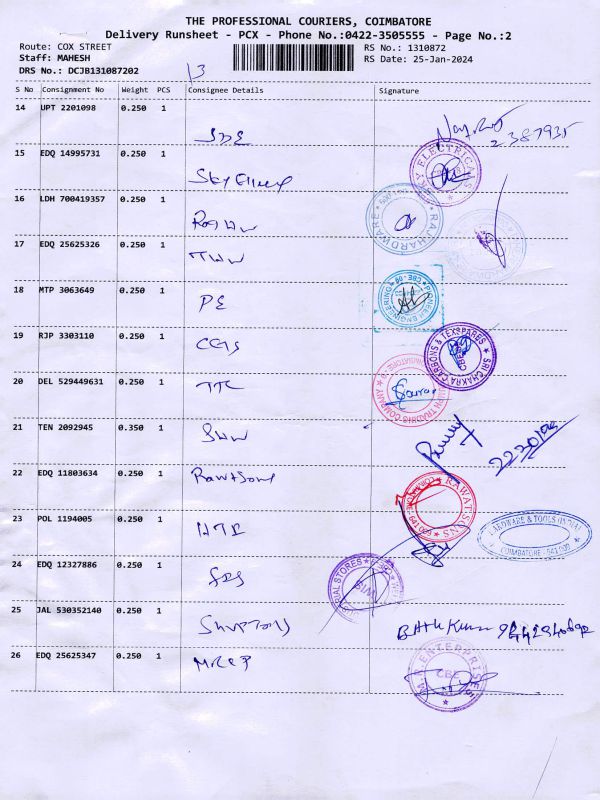 THE PROFESSIONAL COURIERS, COIMBATORE
Delivery Runsheet - PCX - Phone No.:0422-3505555 - Page No.:2
Route: COX STREET
RS No.: 1310872
Staff: MAHESH
RS Date: 25-Jan-2024
DRS No.: DCJB131087202
13
S No Consignment No Weight PCS Consignee Details Signature
14 UPT 2201098 0.250 1
15 EDQ 14995731 0.250 1
SKY ELECTRICALS
16 LDH 700419357 0.250 1
RAJ HARDWARE
17 EDQ 25625326 0.250 1
18 MTP 3063649 0.250 1
PE
PIONEER ENGINEERING CBE-09
19 RJP 3303110 0.250 1
SRI CHAKRA CARBONS & TEXSPARES
20 DEL 529449631 0.250 1
TTC
21 TEN 2092945 0.350 1
22 EDQ 11803634 0.250 1
Rawtsons
RAWATSONS
23 POL 1194005 0.250 1
HTI
HARDWARE & TOOLS (INDIA)
COIMBATORE - 641
24 EDQ 12327886 0.250 1
STORES
25 JAL 530352140 0.250 1
26 EDQ 25625347 0.250 1
ENTERPRISES